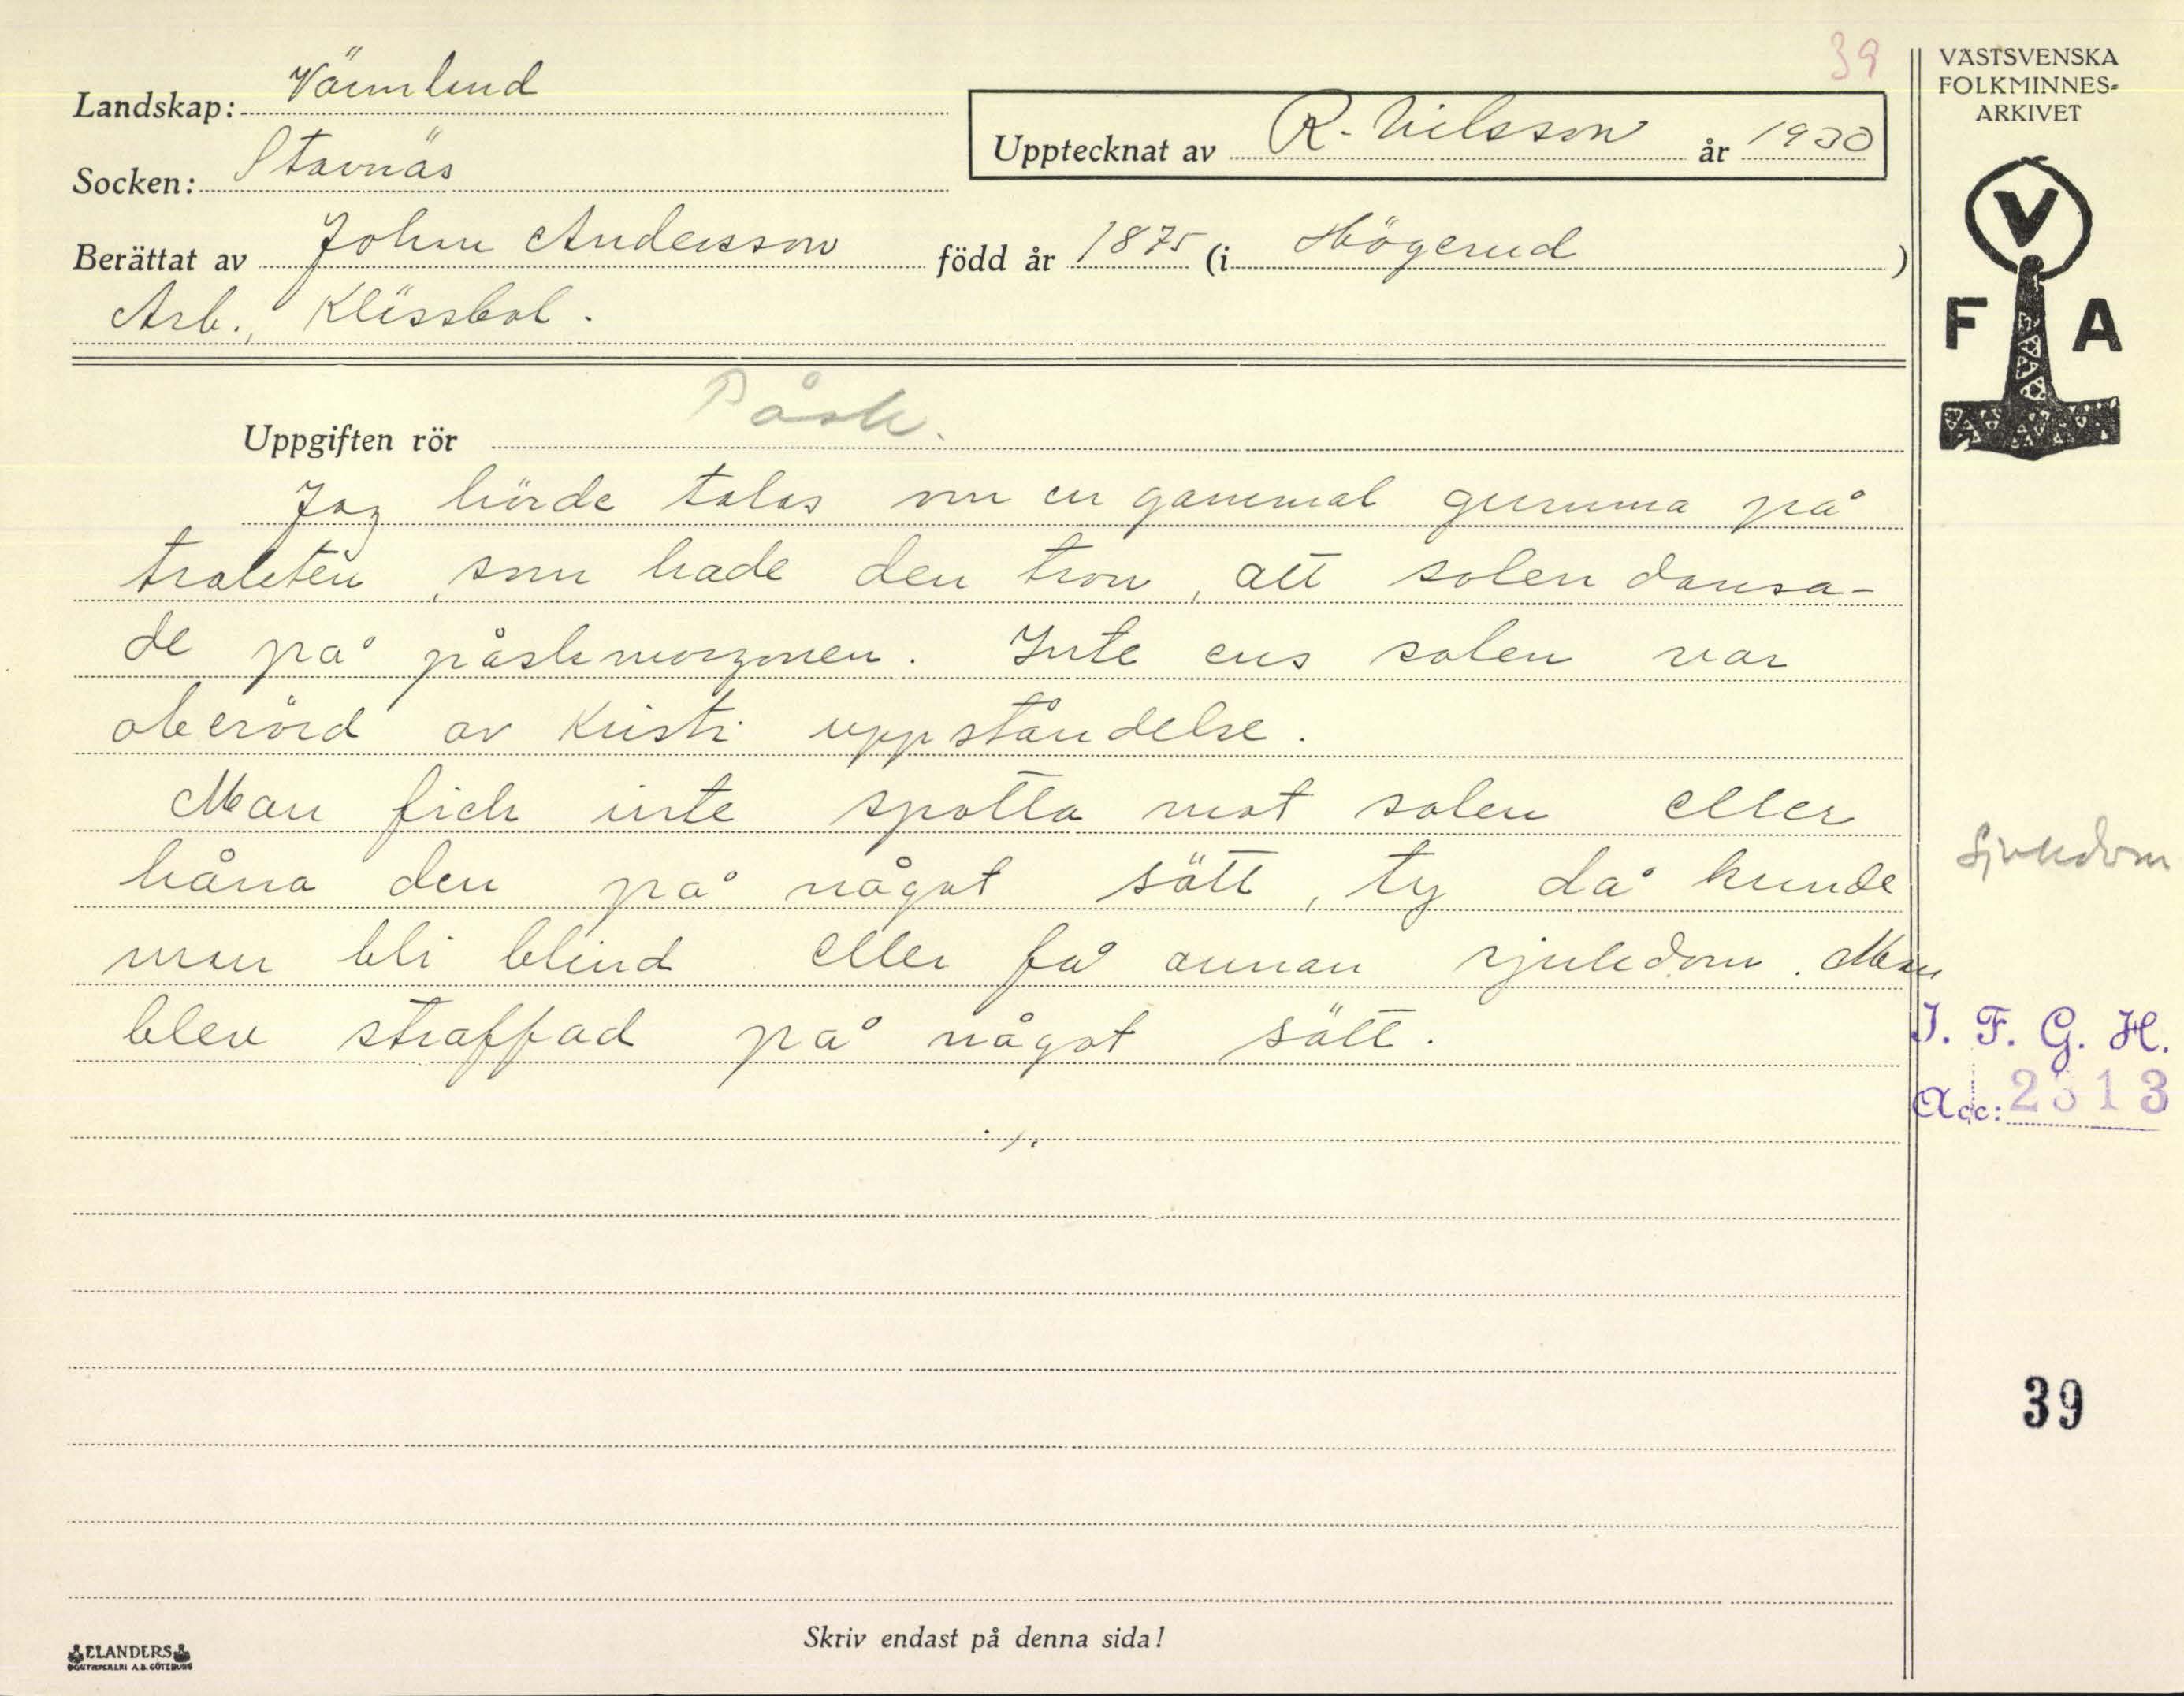 39
VÄSTSVENSKA
FOLKMINNES-
ARKIVET
Landskap: Värmland
Upptecknat av R. Nilsson år 1930
Socken: Stavnäs
Berättat av John Andersson född år 1875 (i Högerud)
Arb., Klässbol.
V
F A
Uppgiften rör Påsk.
Jag hörde talas om en gammal gumma på
trakten, som hade den tron, att solen dansa-
de på påskmorgonen. Inte ens solen var
oberörd av Kristi uppståndelse.
Man fick inte spotta mot solen eller
håna den på något sätt, ty då kunde
man bli blind eller få annan sjukdom. Man
blev straffad på något sätt.
./.
Sjukdom
I. F. G. H.
Acc: 2313
39
Skriv endast på denna sida!
ELANDERS
BOKTRYCKERI A.B. GÖTEBORG